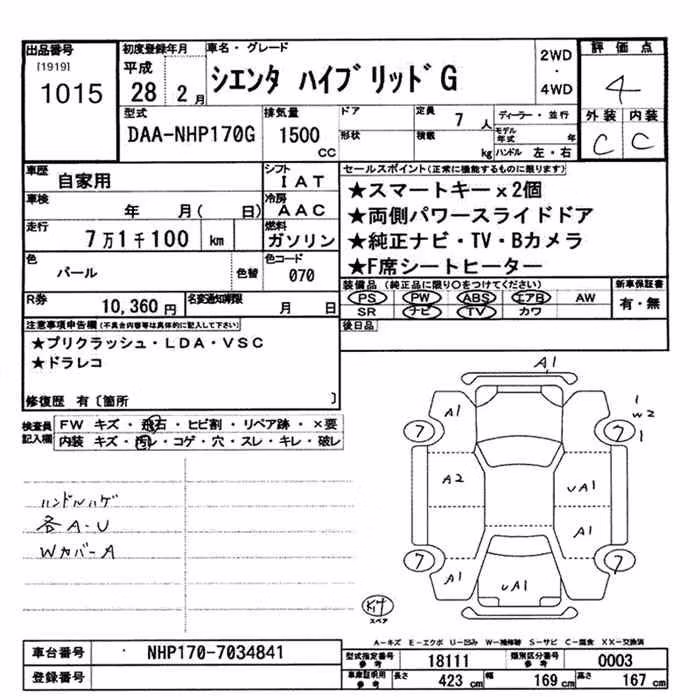 出品番号
[1919]
1015
初度登録年月
平成
28 2月
車名・グレード
シエンタ ハイブリッドG
2WD
・
4WD
評価点
4
外装 内装
C C
型式
DAA-NHP170G
排気量
1500
CC
ドア
形状
定員
7人
積載
kg
ディーラー・並行
モデル年式 年
ハンドル 左・右
車歴
自家用
シフト
IAT
車検
年 月( 日)
冷房
AAC
走行
7万1千100 km
燃料
ガソリン
色
パール
色替
色コード
070
R券
10,360円
名変通知期限
月 日
セールスポイント(正常に機能するものに限ります)
★スマートキーx2個
★両側パワースライドドア
★純正ナビ・TV・Bカメラ
★F席シートヒーター
装備品(純正品に限り○をつけてください)
PS PW ABS エアB AW
SR ナビ TV カワ
新車保証書
有・無
後日品
注意事項申告欄(不具合内容等は具体的に記入して下さい)
★プリクラッシュ・LDA・VSC
★ドラレコ
修復歴 有〔箇所 〕
検査員
記入欄
FW キズ・飛石・ヒビ割・リペア跡・×要
内装 キズ・汚レ・コゲ・穴・スレ・キレ・破レ
ハンドルハゲ
各A-U
WカバーA
A1
A1
1
W2
1
7
7
A2
UA1
A1
7
7
A1
UA1
キ付
スペア
A-キズ E-エクボ U-凹み W-補修跡 S-サビ C-腐食 XX-交換済
車台番号
NHP170-7034841
登録番号
型式指定番号
参考
18111
類別区分番号
参考
0003
車庫証明用
参考
長さ
423 cm
幅
169 cm
高さ
167 cm